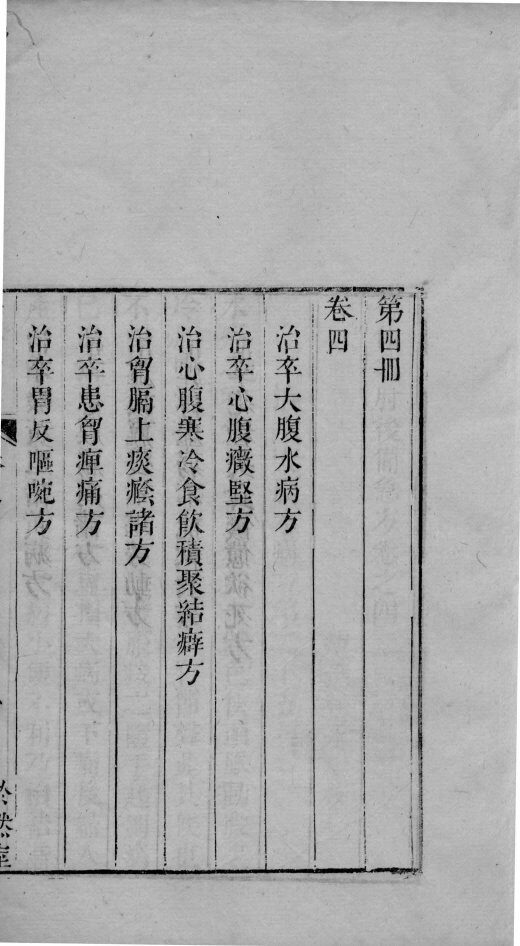 第四冊
卷四
治卒大腹水病方
治卒心腹癥堅方
治心腹寒冷食飲積聚結癖方
治胷膈上痰癊諸方
治卒患胷痺痛方
治卒胃反嘔啘方